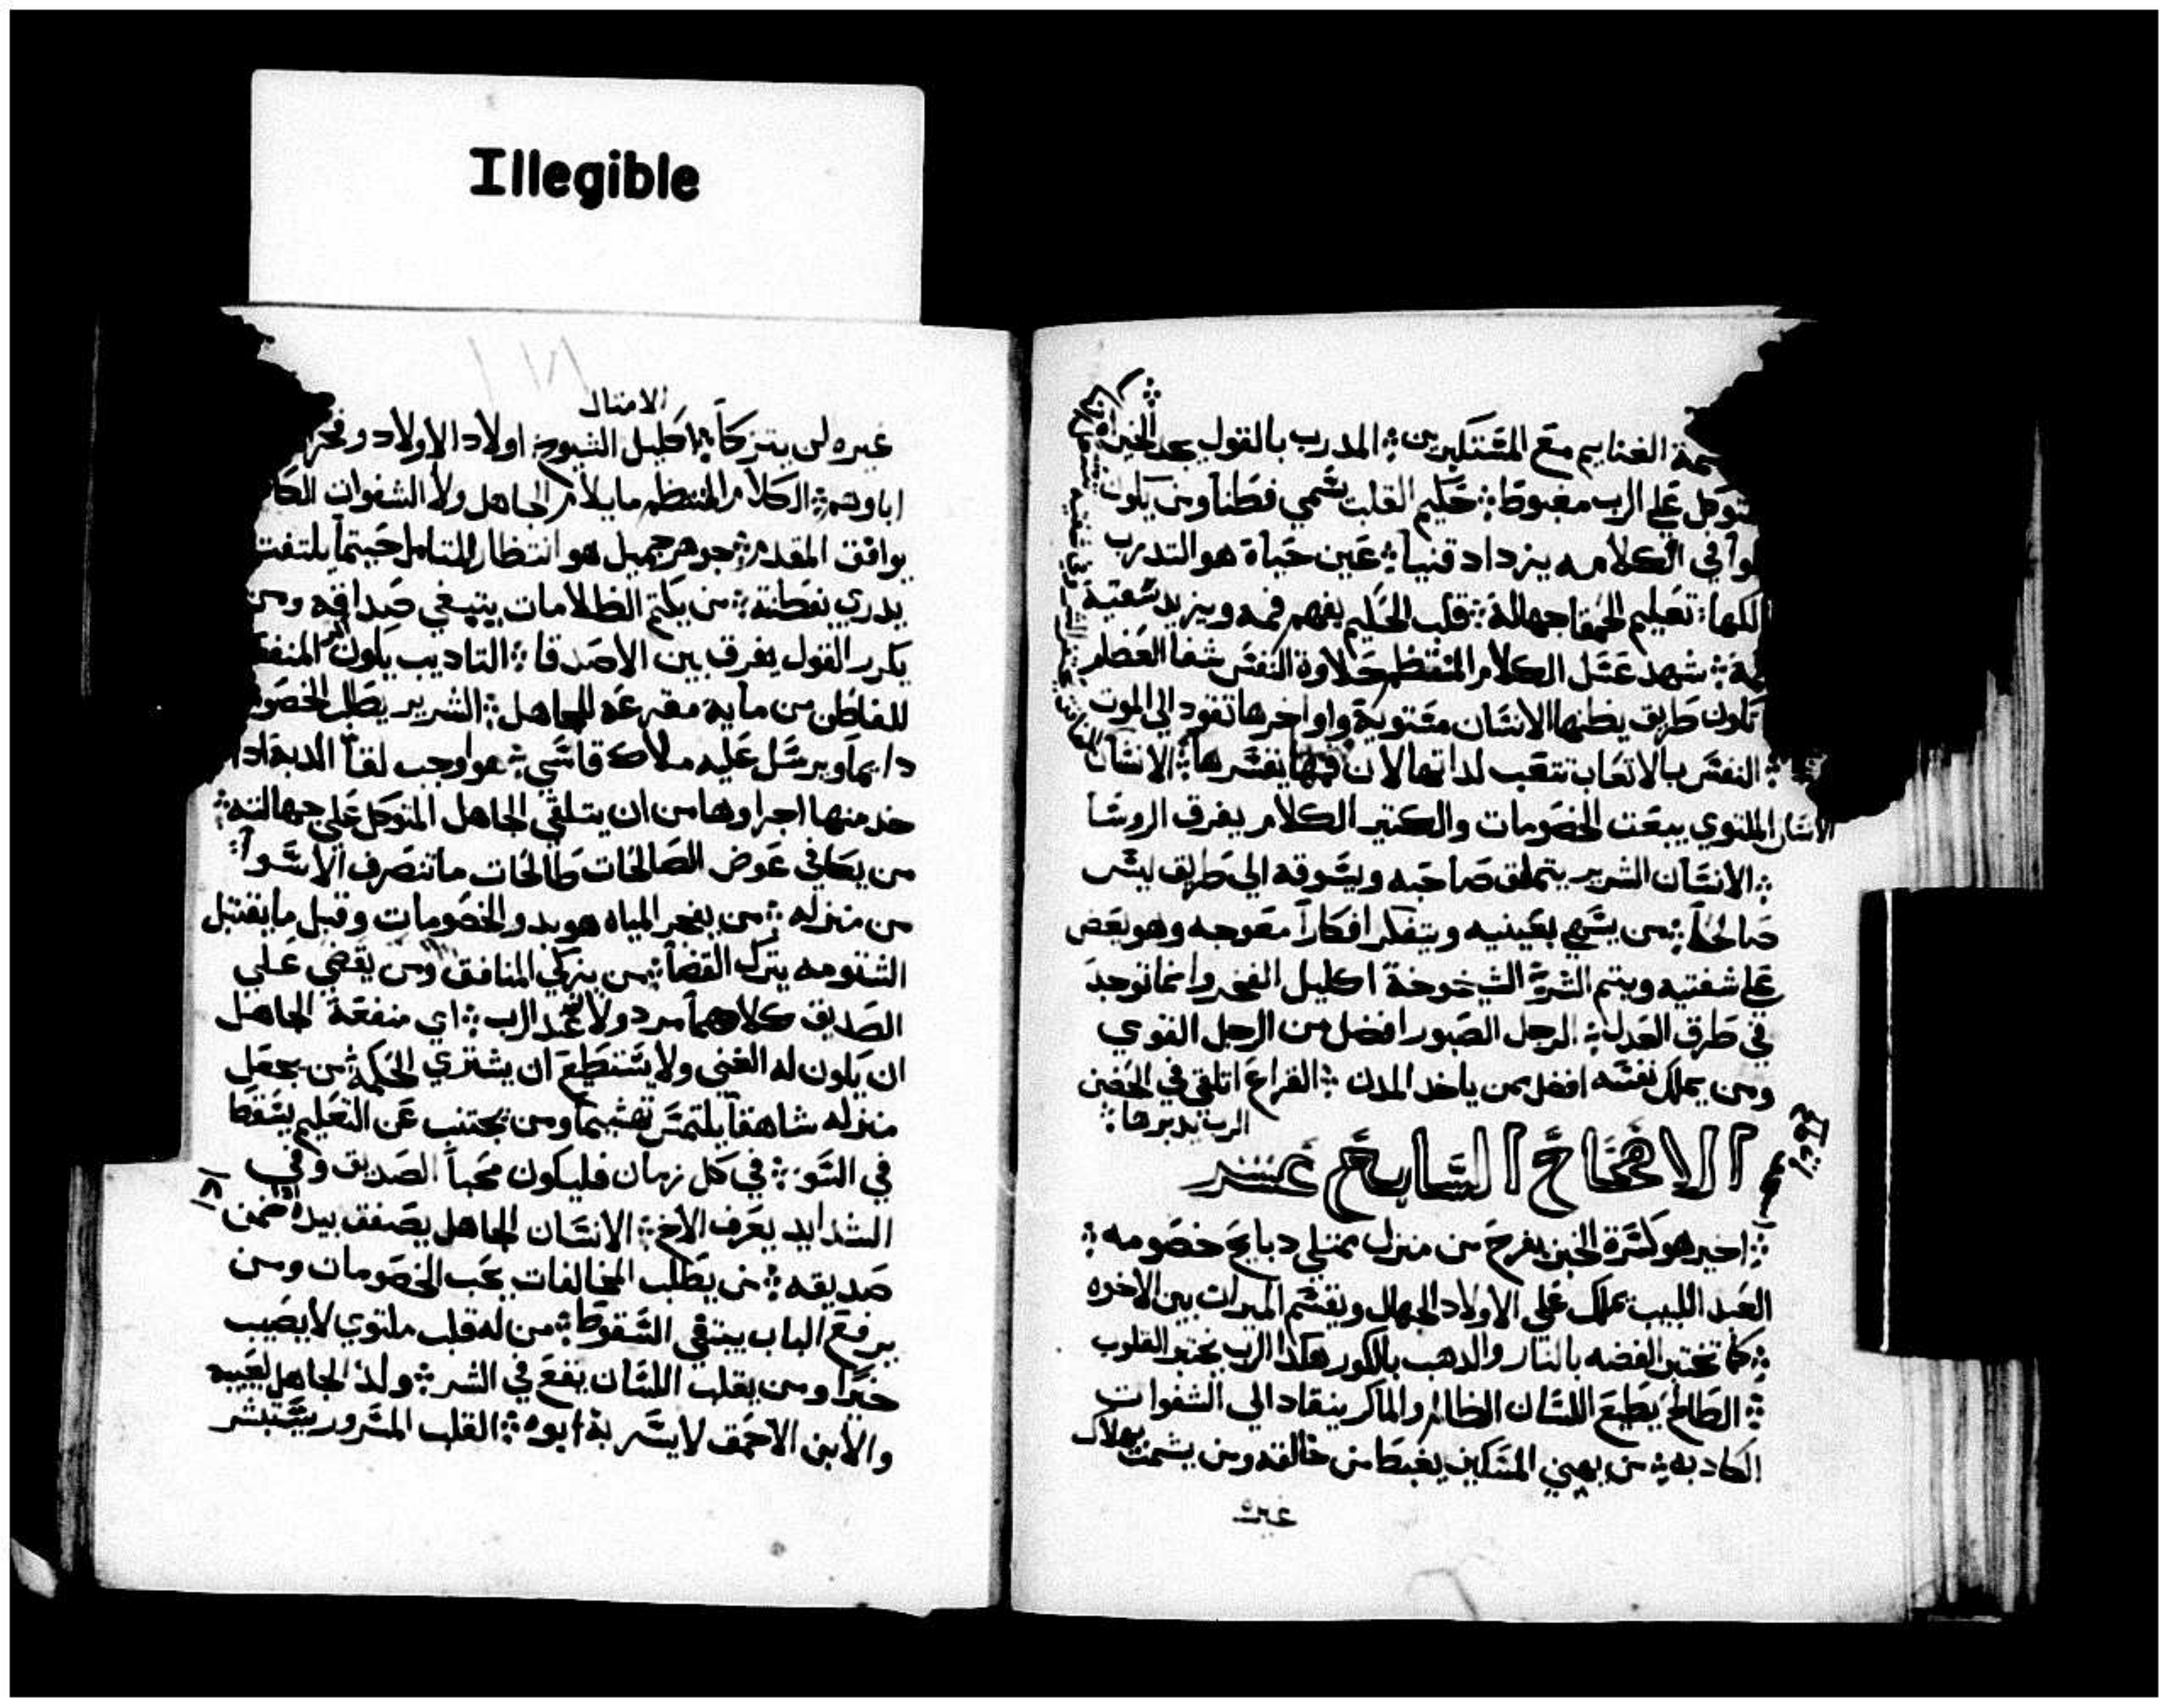 Illegible
الغنايم مع المستكبرين المدرب بالقول يجد الخيرات
علي الرب مغبوطا حكيم القلب يسمي فطنا ومن يكون
في الكلام يزداد قنيا عين حياة هو التدرب
تعليم الحمقا جهالة قلب الحكيم يفهم فمه ويزيد شفتيه
شهد عسل الكلام المنتظم حلاوة النفس شفا العظام
تكون طريق يظنها الانسان مستوية واواخرها تقود الي الموت
النفس بالاتعاب تتعب لداتها لان الانسان
الانسان الملتوي يبعت الخصومات والكتير الكلام يفرق الروسا
الانسان الشرير يتملق صاحبه ويسوقه الي طريق ليس
صالحا من بعينيه ويتفكر افكارا معوجه وهو يعض
علي شفتيه ويتم الشر الشيخوخة اكليل الفخر وانما توجد
في طرق العدل الرجل الصبور افضل من الرجل القوي
ومن يملك نفسه افضل ممن ياخد المدن القراع اتلقي في الحضن
الرب يدبرها
الاصحاح السابع عشر
اخير هو كسرة الخبز بفرح من منزل ممتلي دبايح خصومه
العبد اللبيب يملك علي الاولاد الجهال ويقسم الميرات بين الاخوه
كما تختبر الفضه بالنار والدهب بالكور هكدا الرب يختبر القلوب
الطالح يطيع اللسان الظالم والماكر ينقاد الي الشفوات
الكادبه من يهين المسكين يغيظ من خالقه ومن يشمت بهلاك
غيره
الامتال
غيره لن يتزكا اكليل الشيوخ اولاد الاولاد وفخر
اباوهم الكلام المنتظم ما يلام الجاهل ولا الشفوات
يوافق المقدم جوهر جميل هو انتظار المتامل حيتما يلتفت
يدري بفطنة من يكتم الظلامات يبتغي صداقه ومن
يكرر القول يفرق بين الاصدقا التاديب يكون
للفاطن من مايه مقرعه للجاهل الشرير يطلب
دايما ويرسل عليه ملاك قاسي هو اوجب لقا الدبه ادا
خد منها اجراوها من ان يتلقي الجاهل المتوكل علي جهالته
من يكافي عوض الصالحات طالحات ما تنصرف الاسوا
من منزله من يفجر المياه هو بدو الخصومات وقبل ما يقتبل
الشتومه يترك القضا من يزكي المنافق ومن يقضي علي
الصديق كلاهما مردولان عند الرب اي منفعة الجاهل
ان يكون له الغني ولا يستطيع ان يشتري الحكمة من يجعل
منزله شاهقا يلتمس تهشيما ومن يجتنب عن التعليم يسقط
في السو في كل زمان فليكون محبا الصديق وفي
الشدايد يعرف الاخ الانسان الجاهل يصفق بيده ادا ضمن
صديقه من يطلب المخالفات يحب الخصومات ومن
يرفع الباب يبتغي السقوط من له قلب ملتوي لا يصيب
خيرا ومن يقلب اللسان يقع في الشر ولد الجاهل لعيبه
والابن الاحمق لا يسر به ابوه القلب المسرور يستبشر